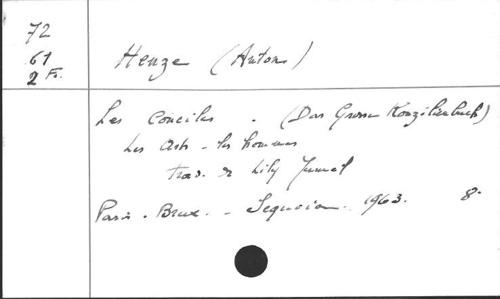 72
61
2 Fr.
Henze (Anton)
Les Conciles. (Das Grosse Konzilienbuch)
Les Arts - les hommes
trad. de Lily Jumel
Paris - Brux. - Sequoia - 1963. 8°